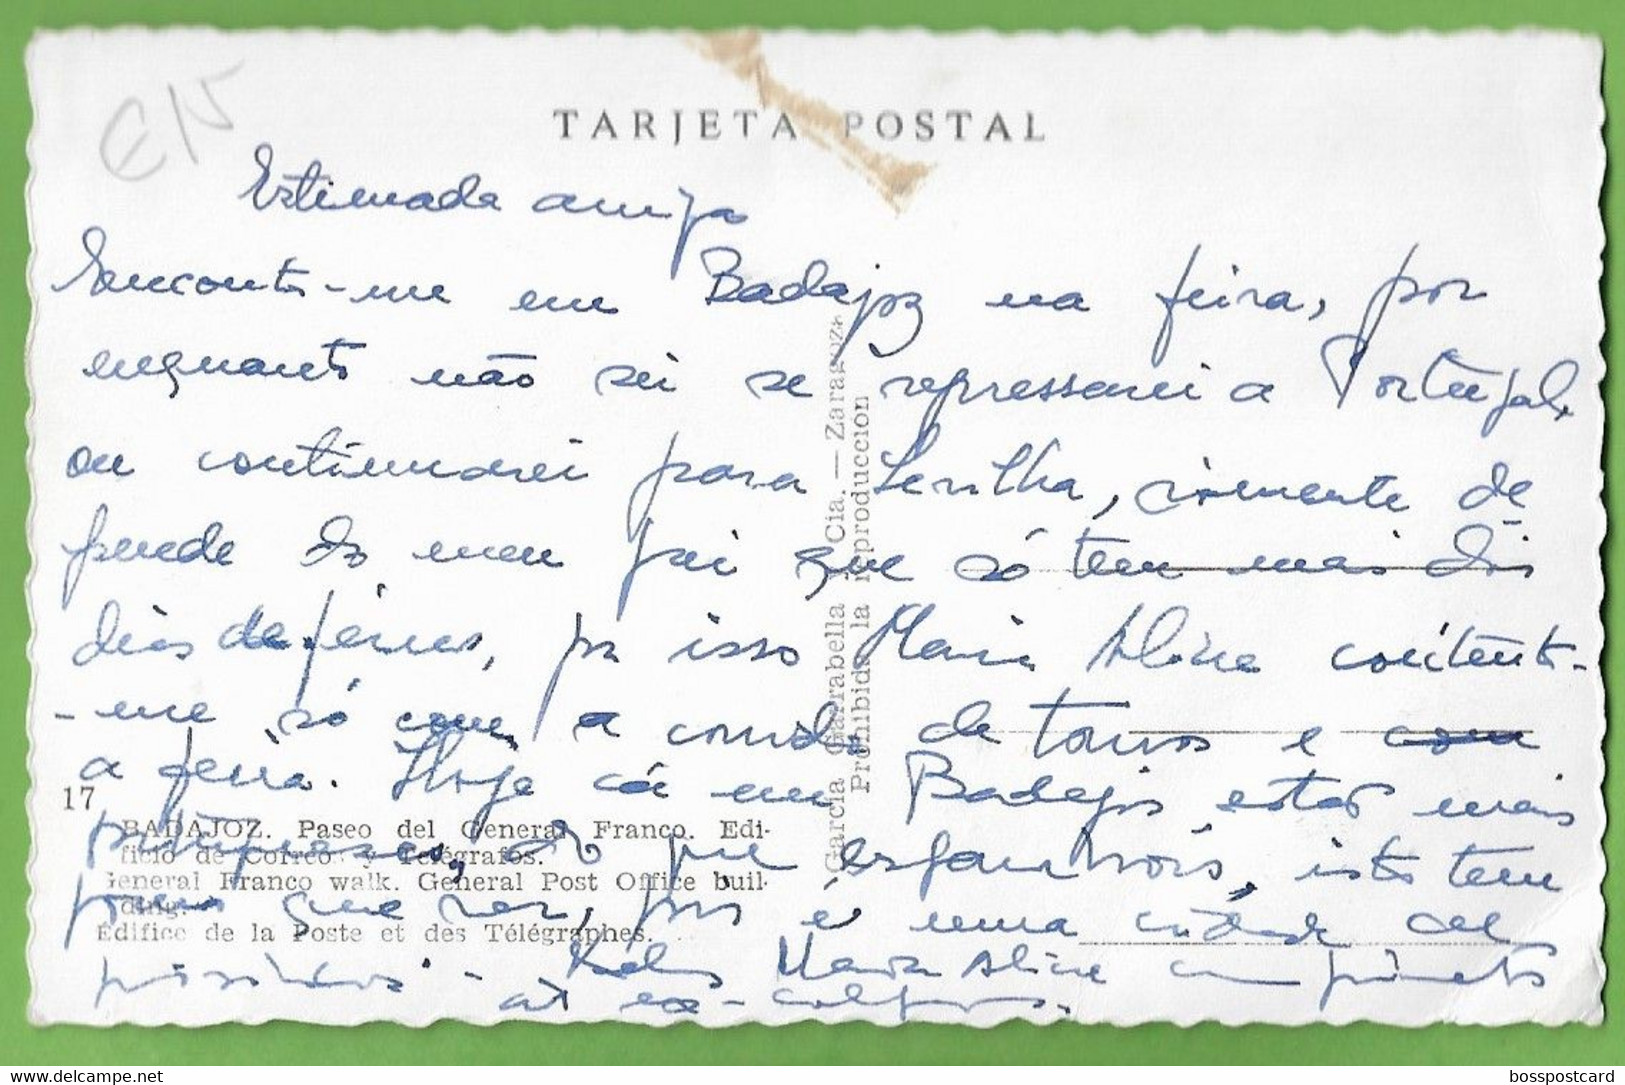 EN
TARJETA POSTAL
Estimada amiga
Encontro-me em Badajoz na feira, por
enquanto não sei se regressarei a Portugal,
ou continuarei para Sevilha, sòmente de
pende do meu pai que só tem mais dois
dias de férias, por isso Maria Alice contento-
-me só com a corrida de touros e com
a feira. Hoje cá em Badajós estão mais
portugueses, do que espanhois, isto tem
pouco que ver, pois é uma cidade de
Maria Alice cumprimentos
ex-colegas.
17
BADAJOZ. Paseo del General Franco. Edi-
ficio de Correos y Telégrafos.
General Franco walk. General Post Office buil-
ding.
Edifice de la Poste et des Télégraphes.
García Garrabella y Cia. — Zaragoza
Prohibida la reproducción
bosspostcard